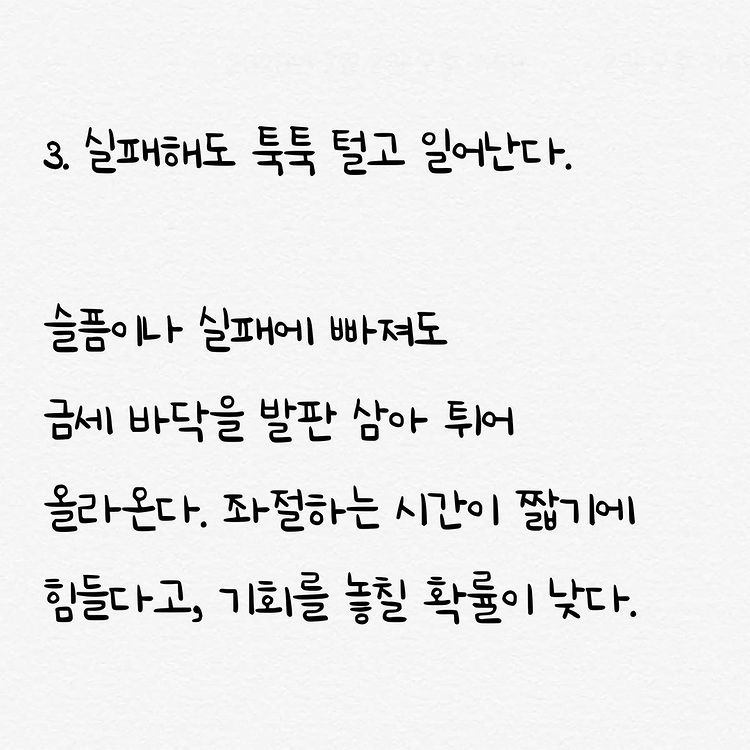 3. 실패해도 툭툭 털고 일어난다.
슬픔이나 실패에 빠져도
금세 바닥을 발판 삼아 튀어
올라온다. 좌절하는 시간이 짧기에
힘들다고, 기회를 놓칠 확률이 낮다.